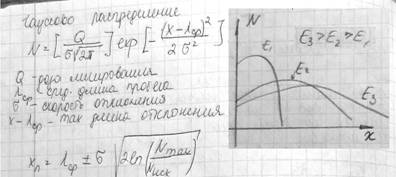 Гауссово распределение
N = [Q / σ√2π] exp[-(x-λср)² / 2σ²]
Q - доза
λср - сред. длина пробега
σ - скорость отклонения
x-λср - max длина отклонения
xп = λср ± σ √2ln(Nmax/Nисх)
N
E3 > E2 > E1
E1
E2
E3
x